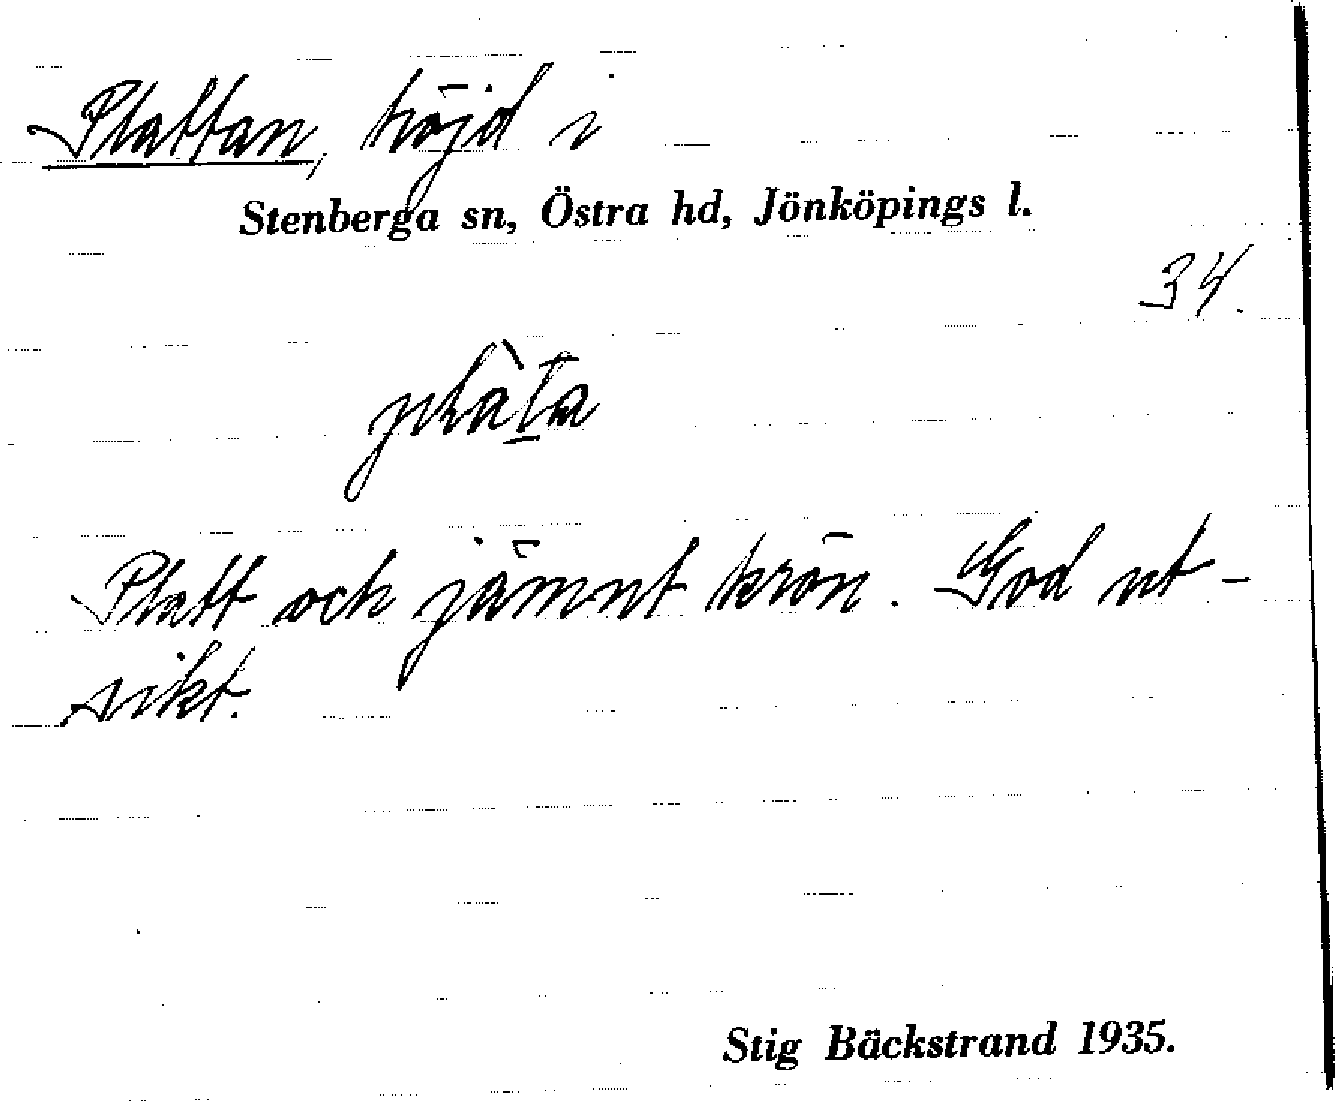 Plattan, höjd i
Stenberga sn, Östra hd, Jönköpings l.
34.
Platt och jämnt krön. God ut-
sikt.
Stig Bäckstrand 1935.